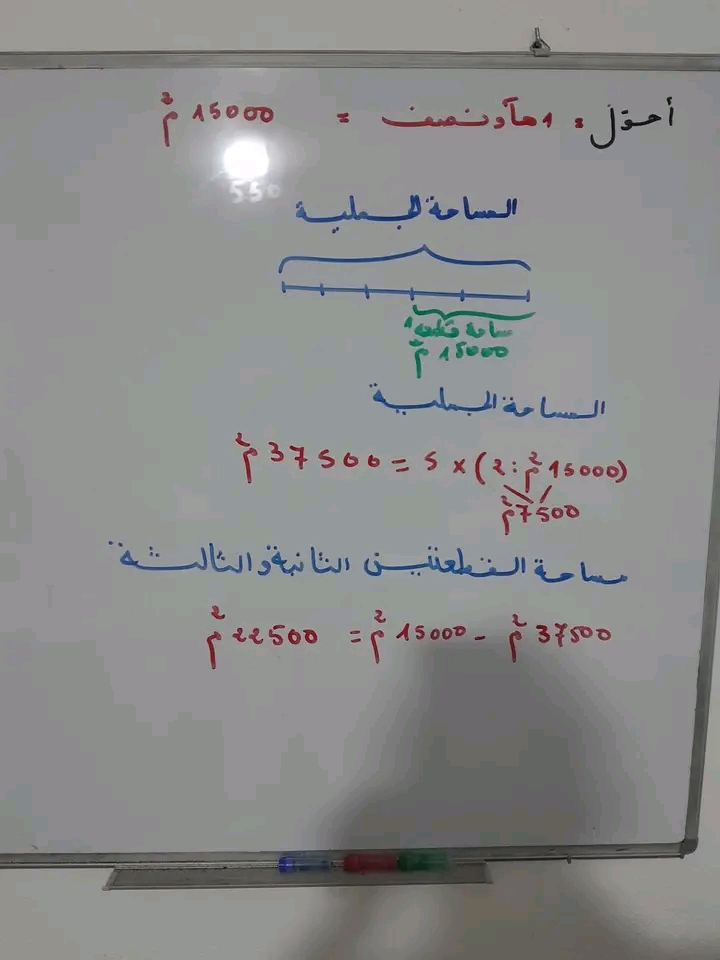 أحوّل : 1 هآ ونصف = 15000 م²
550
المساحة الجملية
مساحة قطعة 1
15000 م²
المساحة الجملية
(15000 م² : 2) × 5 = 37500 م²
7500 م²
مساحة القطعتين الثانية والثالثة
37500 م² - 15000 م² = 22500 م²